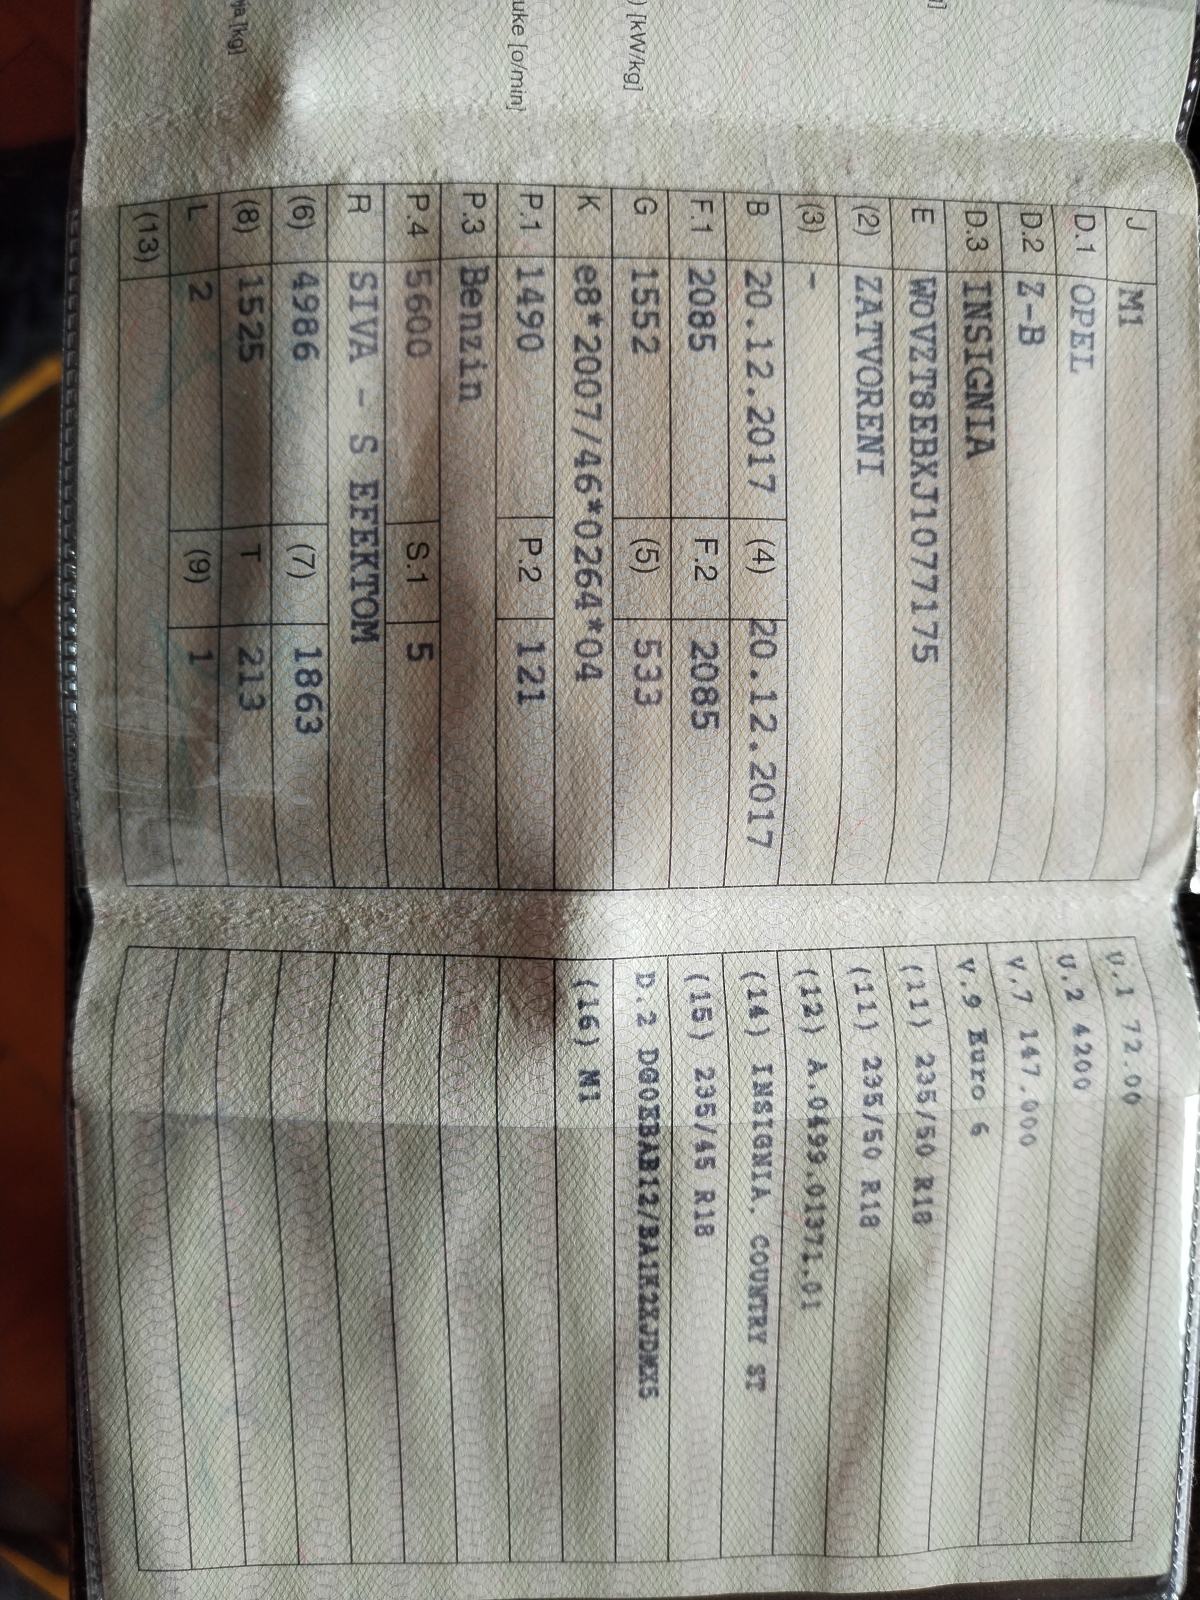 ]
) [kW/kg]
uke [o/min]
ja [kg]
J M1
D.1 OPEL
D.2 Z-B
D.3 INSIGNIA
E W0VZT8EBXJ1077175
(2) ZATVORENI
(3) -
B 20.12.2017 (4) 20.12.2017
F.1 2085 F.2 2085
G 1552 (5) 533
K e8*2007/46*0264*04
P.1 1490 P.2 121
P.3 Benzin
P.4 5600 S.1 5
R SIVA - S EFEKTOM
(6) 4986 (7) 1863
(8) 1525 T 213
L 2 (9) 1
(13)
U.1 72.00
U.2 4200
V.7 147.000
V.9 Euro 6
(11) 235/50 R18
(11) 235/50 R18
(12) A.0499.01371.01
(14) INSIGNIA. COUNTRY ST
(15) 235/45 R18
D.2 DG0EBAB12/BA1K2XJDMX5
(16) M1